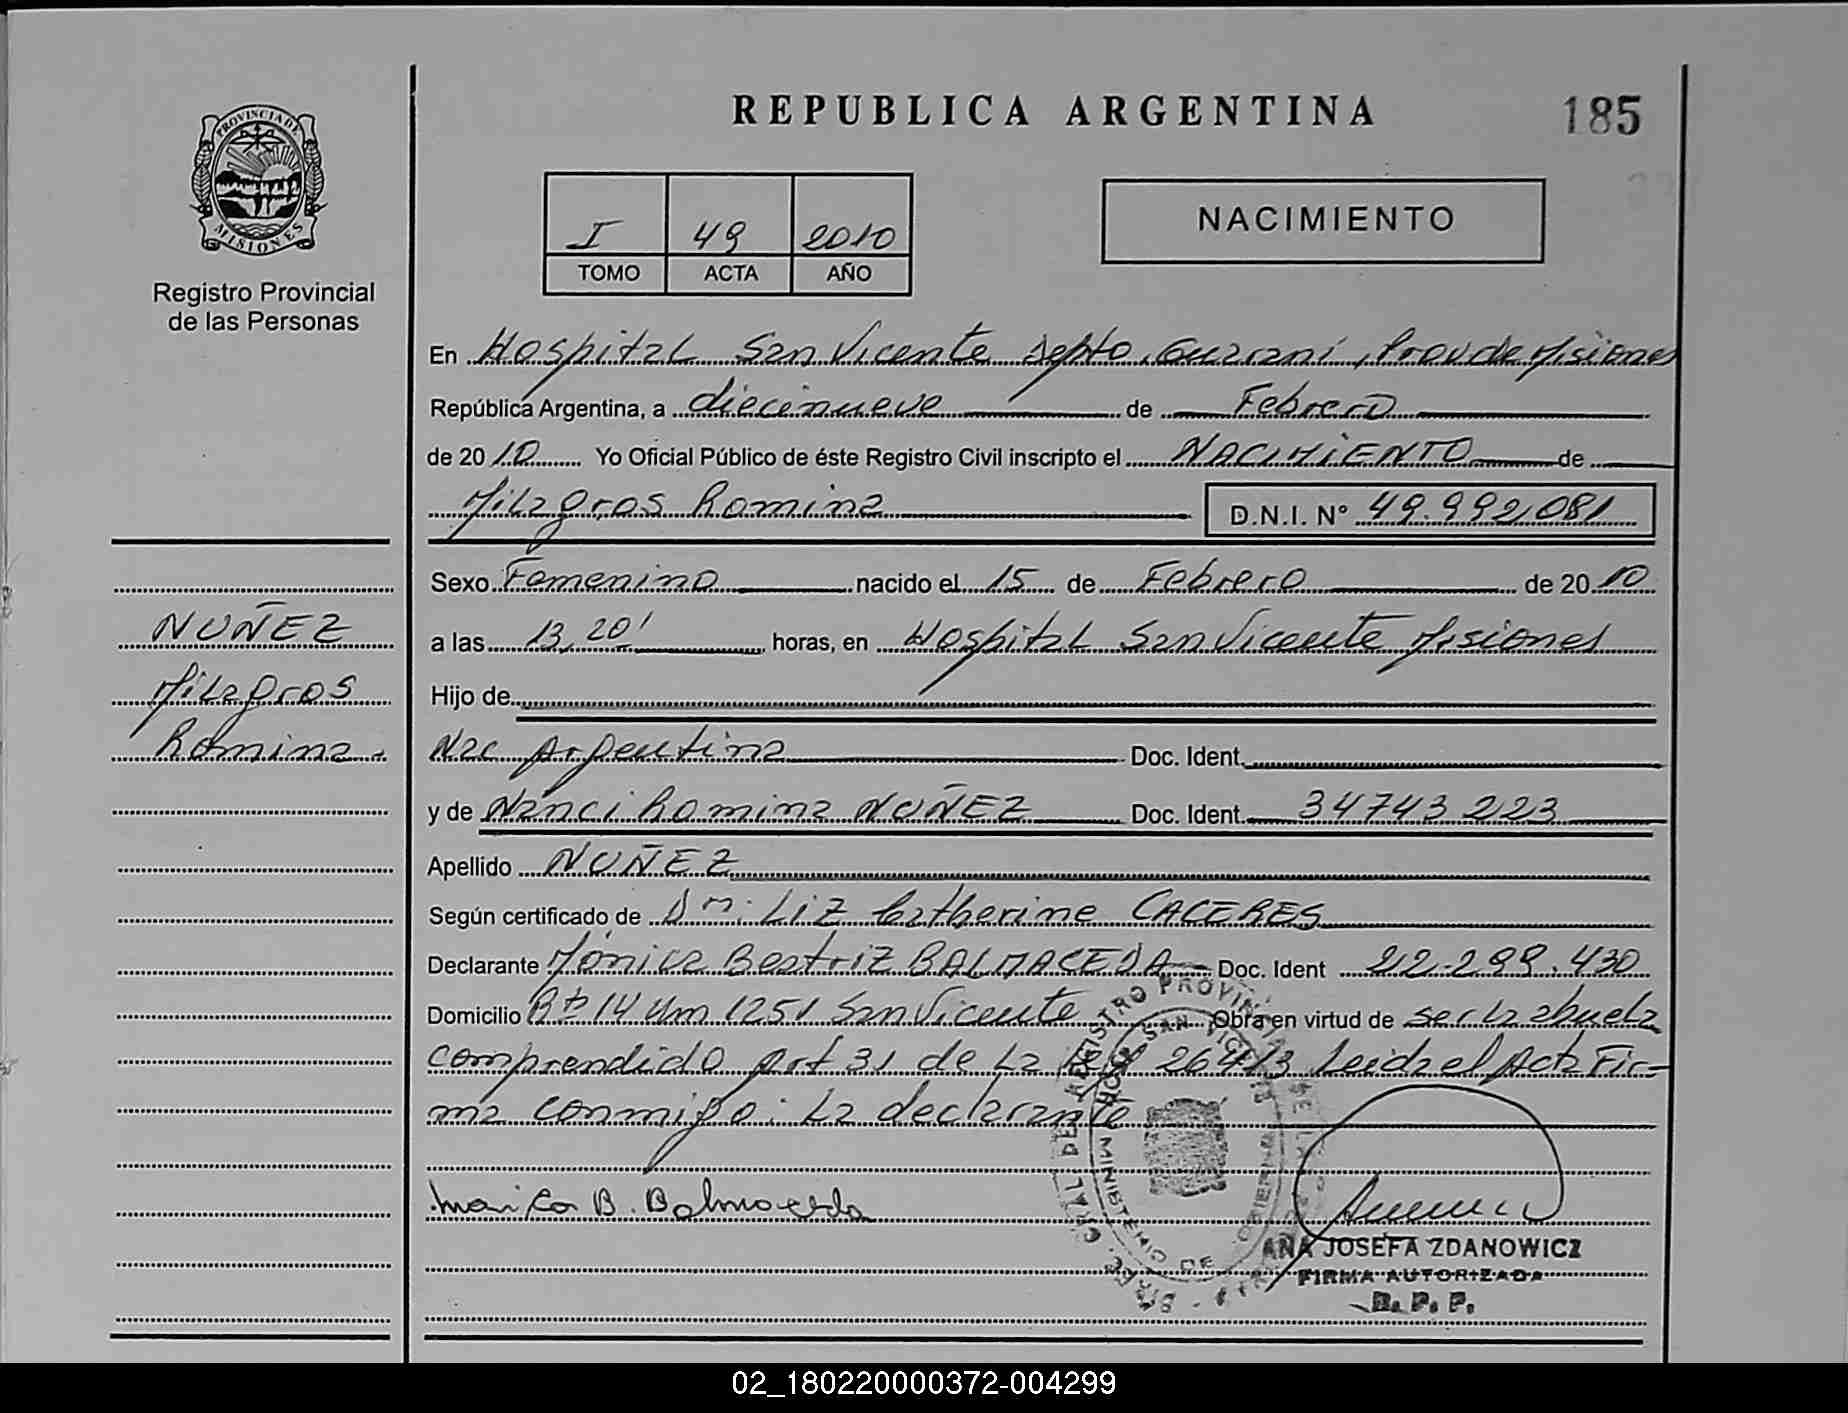 REPUBLICA ARGENTINA
185
PROVINCIA DE
MISIONES
Registro Provincial
de las Personas
I 49 2010
TOMO ACTA AÑO
NACIMIENTO
En Hospital San Vicente Depto. Guarani, Prov de Misiones
República Argentina, a diecinueve de Febrero
de 2010 Yo Oficial Público de éste Registro Civil inscripto el NACIMIENTO de
Milagros Romina D.N.I. Nº 49.992.081
Sexo Femenino nacido el 15 de Febrero de 2010
a las 13,20' horas, en Hospital San Vicente Misiones
Hijo de
Nac Argentina Doc. Ident.
y de Nanci Romina NUÑEZ Doc. Ident. 34743223
Apellido NUÑEZ
Según certificado de Dra. Liz Catherine CACERES
Declarante Mónica Beatriz BALMACEDA Doc. Ident 22.299.430
Domicilio Rta 14 Km 1251 San Vicente Obra en virtud de ser la abuela
comprendido Art 31 de La Ley 26413 Leida el Acta Fir-
ma conmigo: La declarante
NUÑEZ
Milagros
Romina.
Monica B. Balmaceda
ANA JOSEFA ZDANOWICZ
FIRMA AUTORIZADA
R. P. P.
02_180220000372-004299